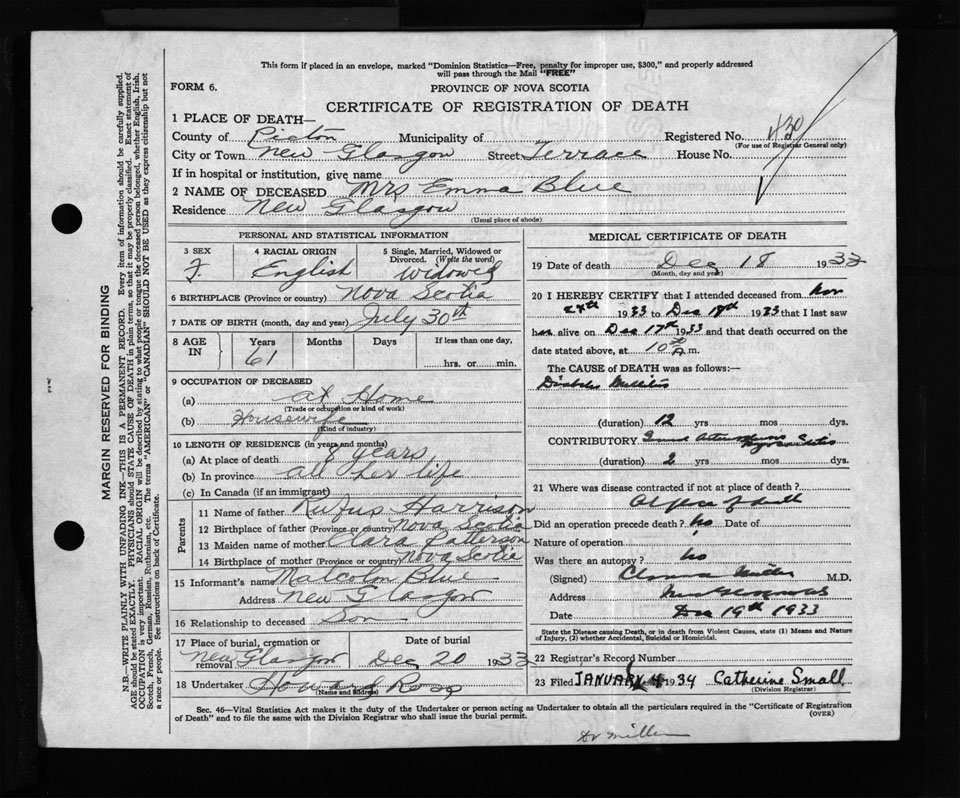 This form if placed in an envelope, marked "Dominion Statistics—Free, penalty for improper use, $300," and properly addressed
will pass through the Mail "FREE"
FORM 6.
PROVINCE OF NOVA SCOTIA
CERTIFICATE OF REGISTRATION OF DEATH
1 PLACE OF DEATH—
County of Pictou Municipality of Registered No. 430
(For use of Registrar General only)
City or Town New Glasgow Street Terrace House No.
If in hospital or institution, give name
2 NAME OF DECEASED Mrs Emma Blue
Residence New Glasgow
(Usual place of abode)
PERSONAL AND STATISTICAL INFORMATION
3 SEX
F.
4 RACIAL ORIGIN
English
5 Single, Married, Widowed or
Divorced. (Write the word)
Widowed
6 BIRTHPLACE (Province or country) Nova Scotia
7 DATE OF BIRTH (month, day and year) July 30th
8 AGE IN
Years Months Days If less than one day,
61 hrs. or min.
9 OCCUPATION OF DECEASED
(a) at Home
(Trade or occupation or kind of work)
(b) Housewife
(Kind of industry)
10 LENGTH OF RESIDENCE (in years and months)
(a) At place of death 8 years
(b) In province all her life
(c) In Canada (if an immigrant)
Parents
11 Name of father Rufus Harrison
12 Birthplace of father (Province or country) Nova Scotia
13 Maiden name of mother Clara Patterson
14 Birthplace of mother (Province or country) Nova Scotia
15 Informant's name Malcolm Blue
Address New Glasgow
16 Relationship to deceased Son
17 Place of burial, cremation or
removal New Glasgow
Date of burial
Dec 20 1933
18 Undertaker Howard Ross
(Name and address)
MEDICAL CERTIFICATE OF DEATH
19 Date of death Dec 18 1933
(Month, day and year)
20 I HEREBY CERTIFY that I attended deceased from Nov
1933 to Dec 18th 1933 that I last saw
her alive on Dec 17th 1933 and that death occurred on
the date stated above, at 10 A.m.
The CAUSE of DEATH was as follows:—
Diabetes Mellitus
(duration) 12 yrs mos dys.
CONTRIBUTORY
(duration) 2 yrs mos dys.
21 Where was disease contracted if not at place of death?
At place of death
Did an operation precede death? No Date of
Nature of operation
Was there an autopsy? No
(Signed) Miller M.D.
Address New Glasgow N.S
Date Dec 19th 1933
State the Disease causing Death, or in death from Violent Causes, state (1) Means and Nature
of Injury, (2) whether Accidental, Suicidal or Homicidal.
22 Registrar's Record Number
23 Filed JANUARY 4 1934 Catherine Small
(Division Registrar)
Sec. 46—Vital Statistics Act makes it the duty of the Undertaker or person acting as Undertaker to obtain all the particulars required in the "Certificate of Registration
of Death" and to file the same with the Division Registrar who shall issue the burial permit.
(OVER)
Dr Miller
MARGIN RESERVED FOR BINDING
N.B.—WRITE PLAINLY WITH UNFADING INK—THIS IS A PERMANENT RECORD. Every item of information should be carefully supplied.
AGE should be stated EXACTLY. PHYSICIANS should STATE CAUSE OF DEATH in plain terms, so that it may be properly classified. Exact statement of
OCCUPATION is very important. RACIAL ORIGIN will be described by stating to what people or tongue the deceased person belonged, whether English, Irish,
Scotch, French, German, Russian, Ruthenian, etc. The terms "AMERICAN" or "CANADIAN" SHOULD NOT BE USED as they express citizenship but not
a race or people. See instructions on back of Certificate.